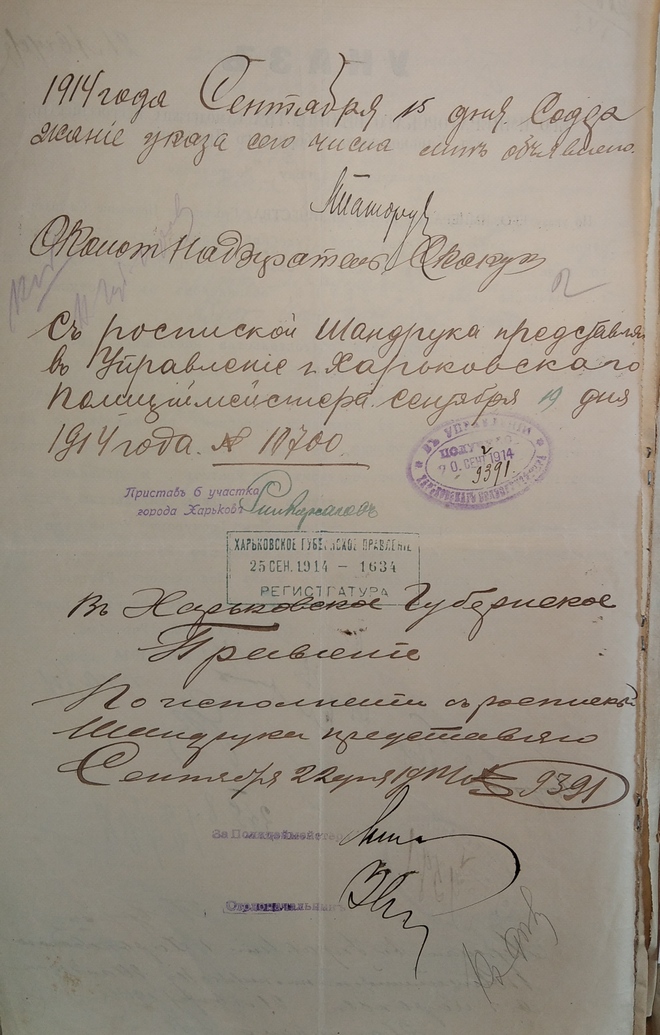 1914 года Сентября 15 дня Содер
жаніе указа сего числа мнѣ объявлено.
Околот Надзиратель Скакун
Съ роспиской Шандрука представля
въ Управленіе г. Харьковскаго
Полиціймейстера. сентября 19 дня
1914 года. № 11700
ВЪ УПРАВЛЕНІИ
ПОЛУЧЕНО
20. СЕНТ 1914
9391
ХАРЬКОВСКАГО ПОЛИЦІЙМЕЙСТЕРА
Приставъ 6 участка
города Харькова
ХАРЬКОВСКОЕ ГУБЕРНСКОЕ ПРАВЛЕНІЕ
25 СЕН. 1914 — 1634
РЕГИСТРАТУРА
Въ Харьковское Губернское
Правленіе
По исполненіи съ роспиской
Шандрука представляю
Сентября 22 дня 1914 № 9391
За Полиціймейстера